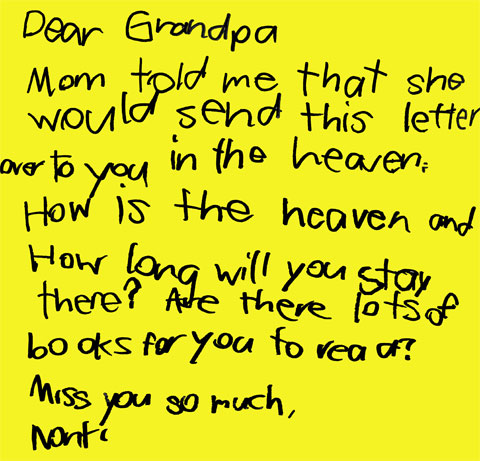 Dear Grandpa
Mom told me that she
would send this letter
over to you in the heaven.
How is the heaven and
How long will you stay
there? Are there lots of
books for you to read?
Miss you so much,
Nonti